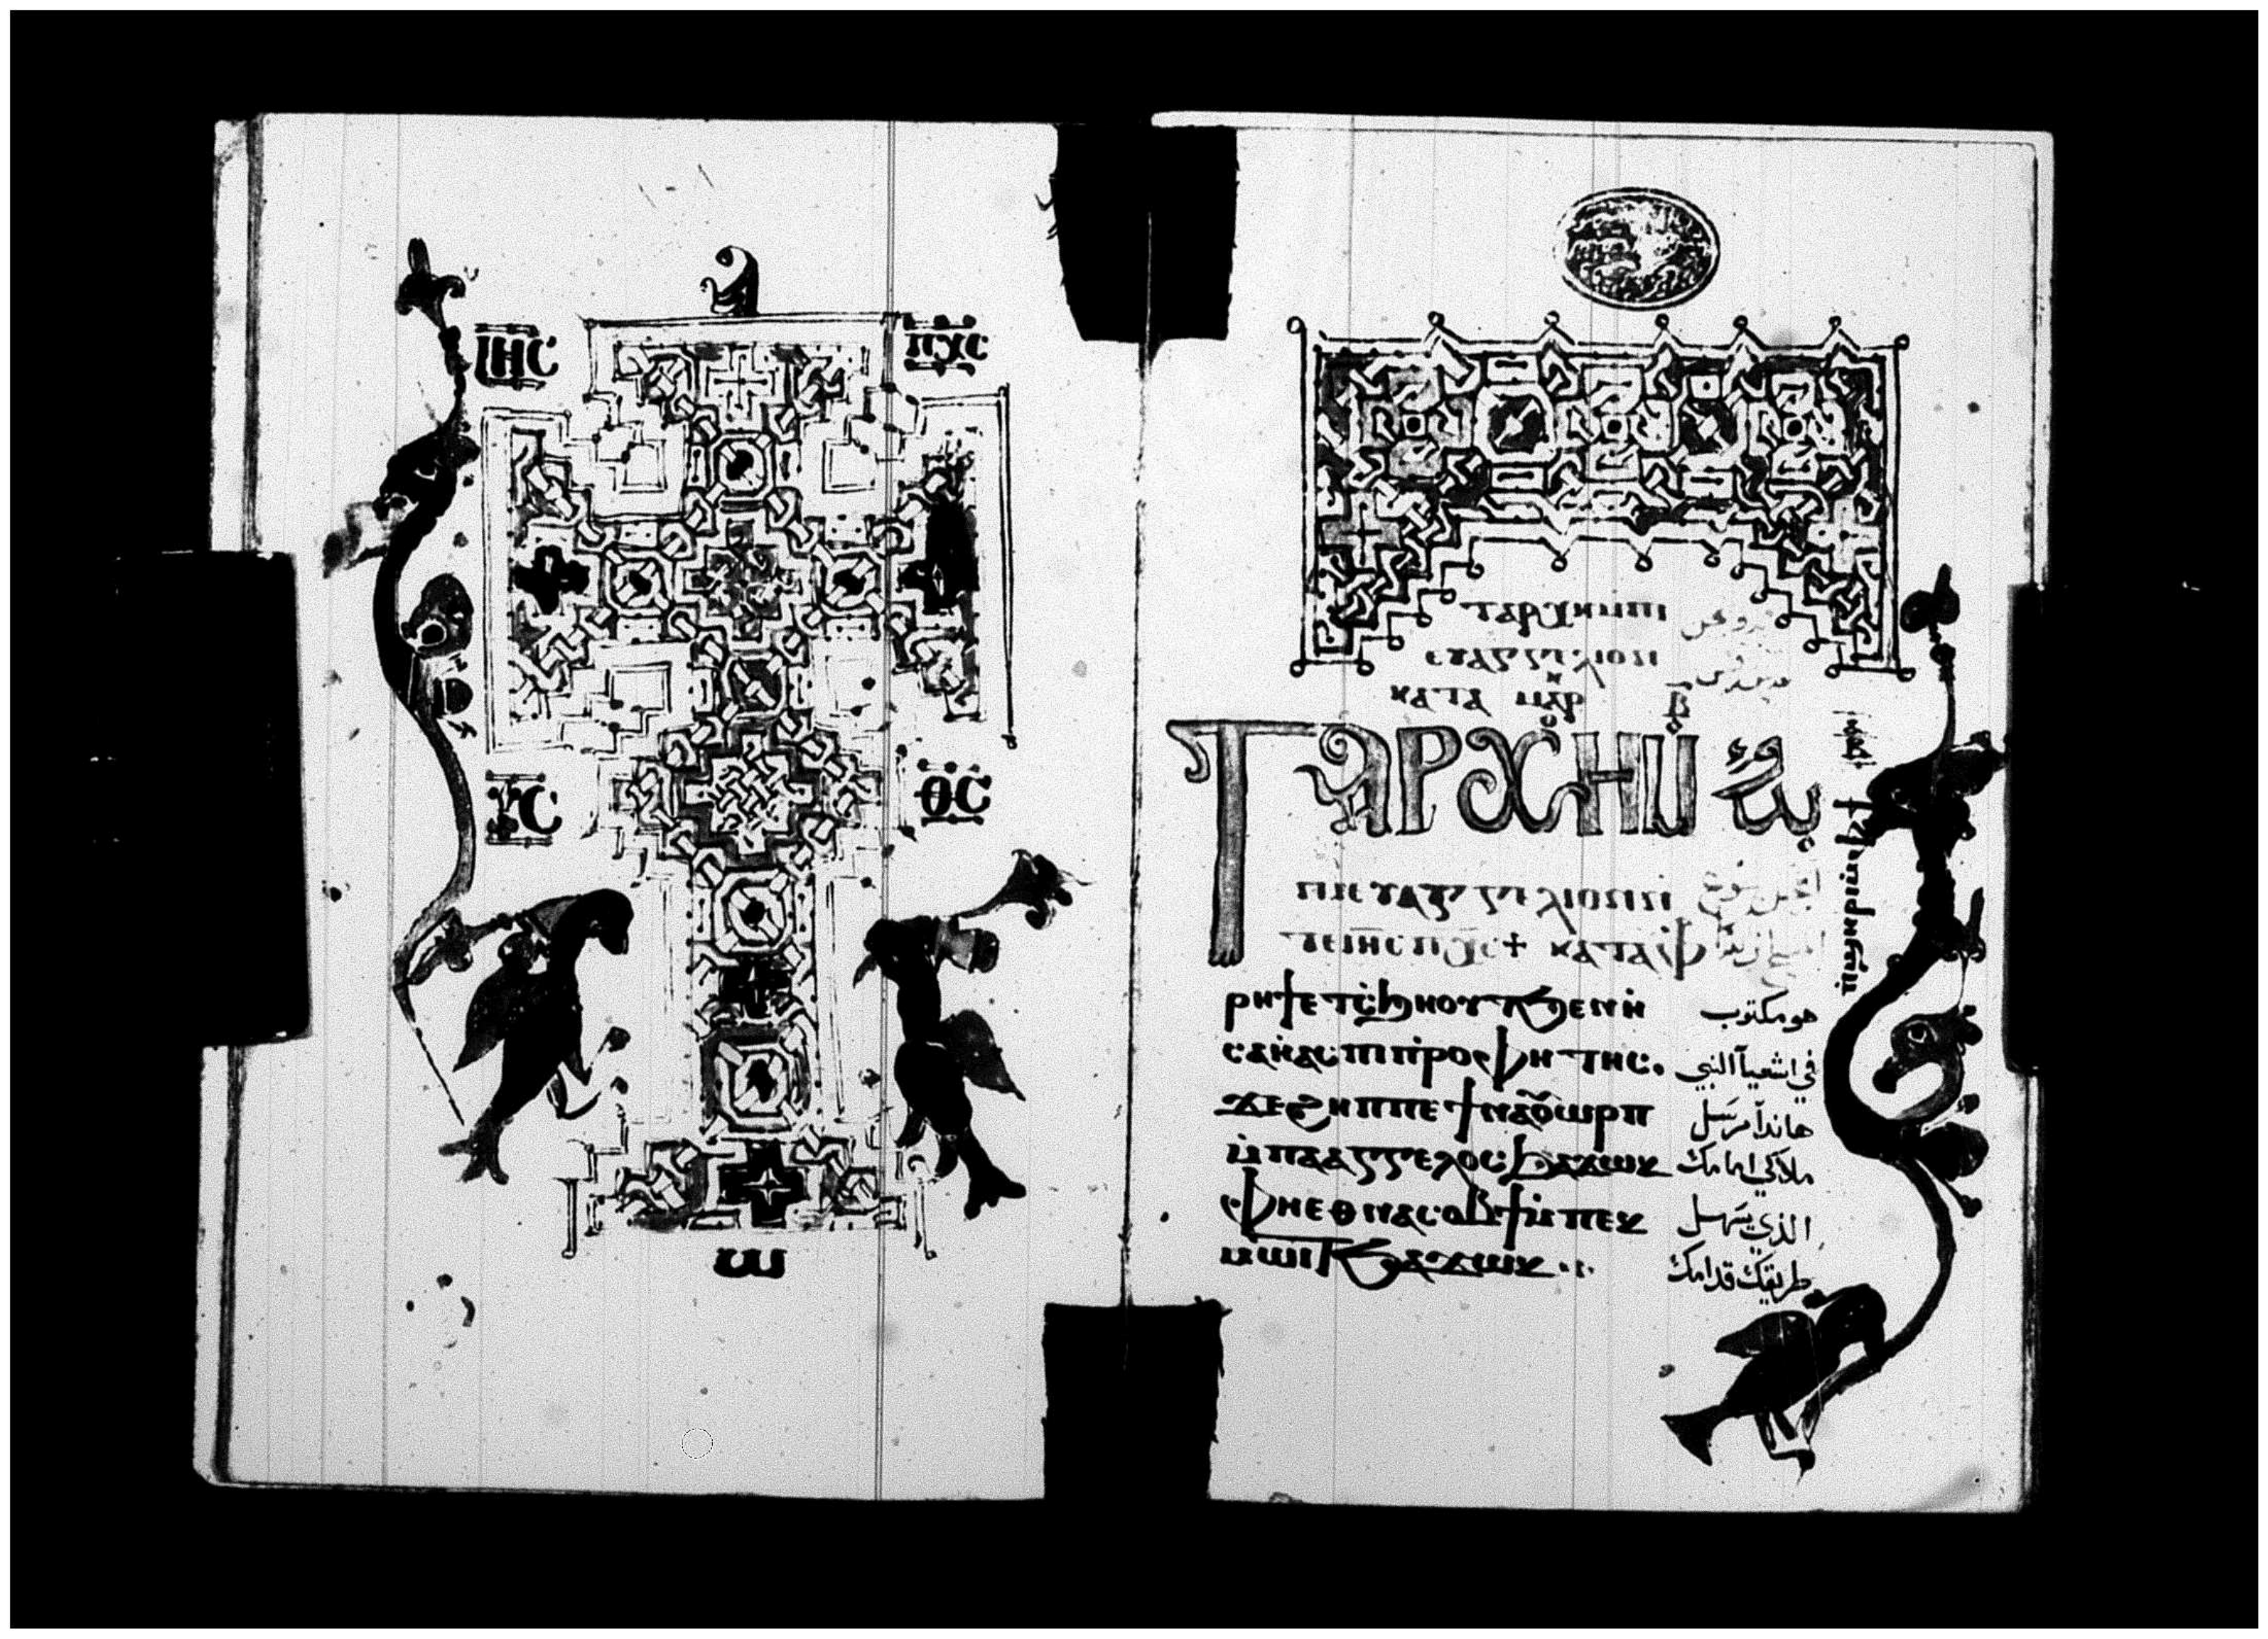 ⲓⲏⲥ ⲡⲭⲥ
ⲩⲥ ⲑⲥ
ⲱ
ⲧⲁⲣⲭⲏ ⲙⲡⲓ
ⲉⲩⲁⲅⲅⲉⲗⲓⲟⲛ
ⲕⲁⲧⲁ ⲙⲁⲣ ⲃ̅
ⲧⲁⲣⲭⲏ ⲙ̇
ⲡⲓⲉⲩⲁⲅⲅⲉⲗⲓⲟⲛ
ⲧⲉ ⲓⲏⲥ ⲡⲭⲥ ⲕⲁⲧⲁⲫ
ⲣⲏϯ ⲉⲧⲥ̇ϧⲏⲟⲩⲧ ϧⲉⲛ ⲏ̇ هو مكتوب
ⲥⲁⲏ̇ⲁⲥ ⲡⲓⲡ̇ⲣⲟⲫⲏⲧⲏⲥ. في اشعيآ النبي
ϫⲉ ϩⲏⲡⲡⲉ ϯⲛⲁⲟ̇ⲩⲱⲣⲡ هاندا مرسل
ⲙ̇ⲡⲁⲁⲅⲅⲉⲗⲟⲥ ϧⲁϫⲱⲕ ملاكي امامك
ⲫⲏⲉⲑⲛⲁⲥⲟⲃϯ ⲙ̇ⲡⲉⲕ الذي يسهل
ⲙⲱⲓⲧ ϧⲁϫⲱⲕ طريقك قدامك